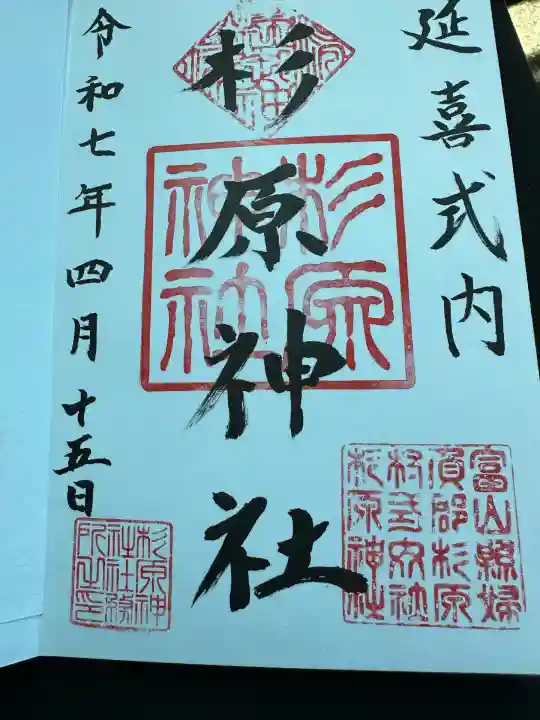 延喜式内
杉原神社
令和七年四月十五日
杉原
神社
富山縣婦
負郡杉原
村
杉原神社
杉原神
社社務
所之印